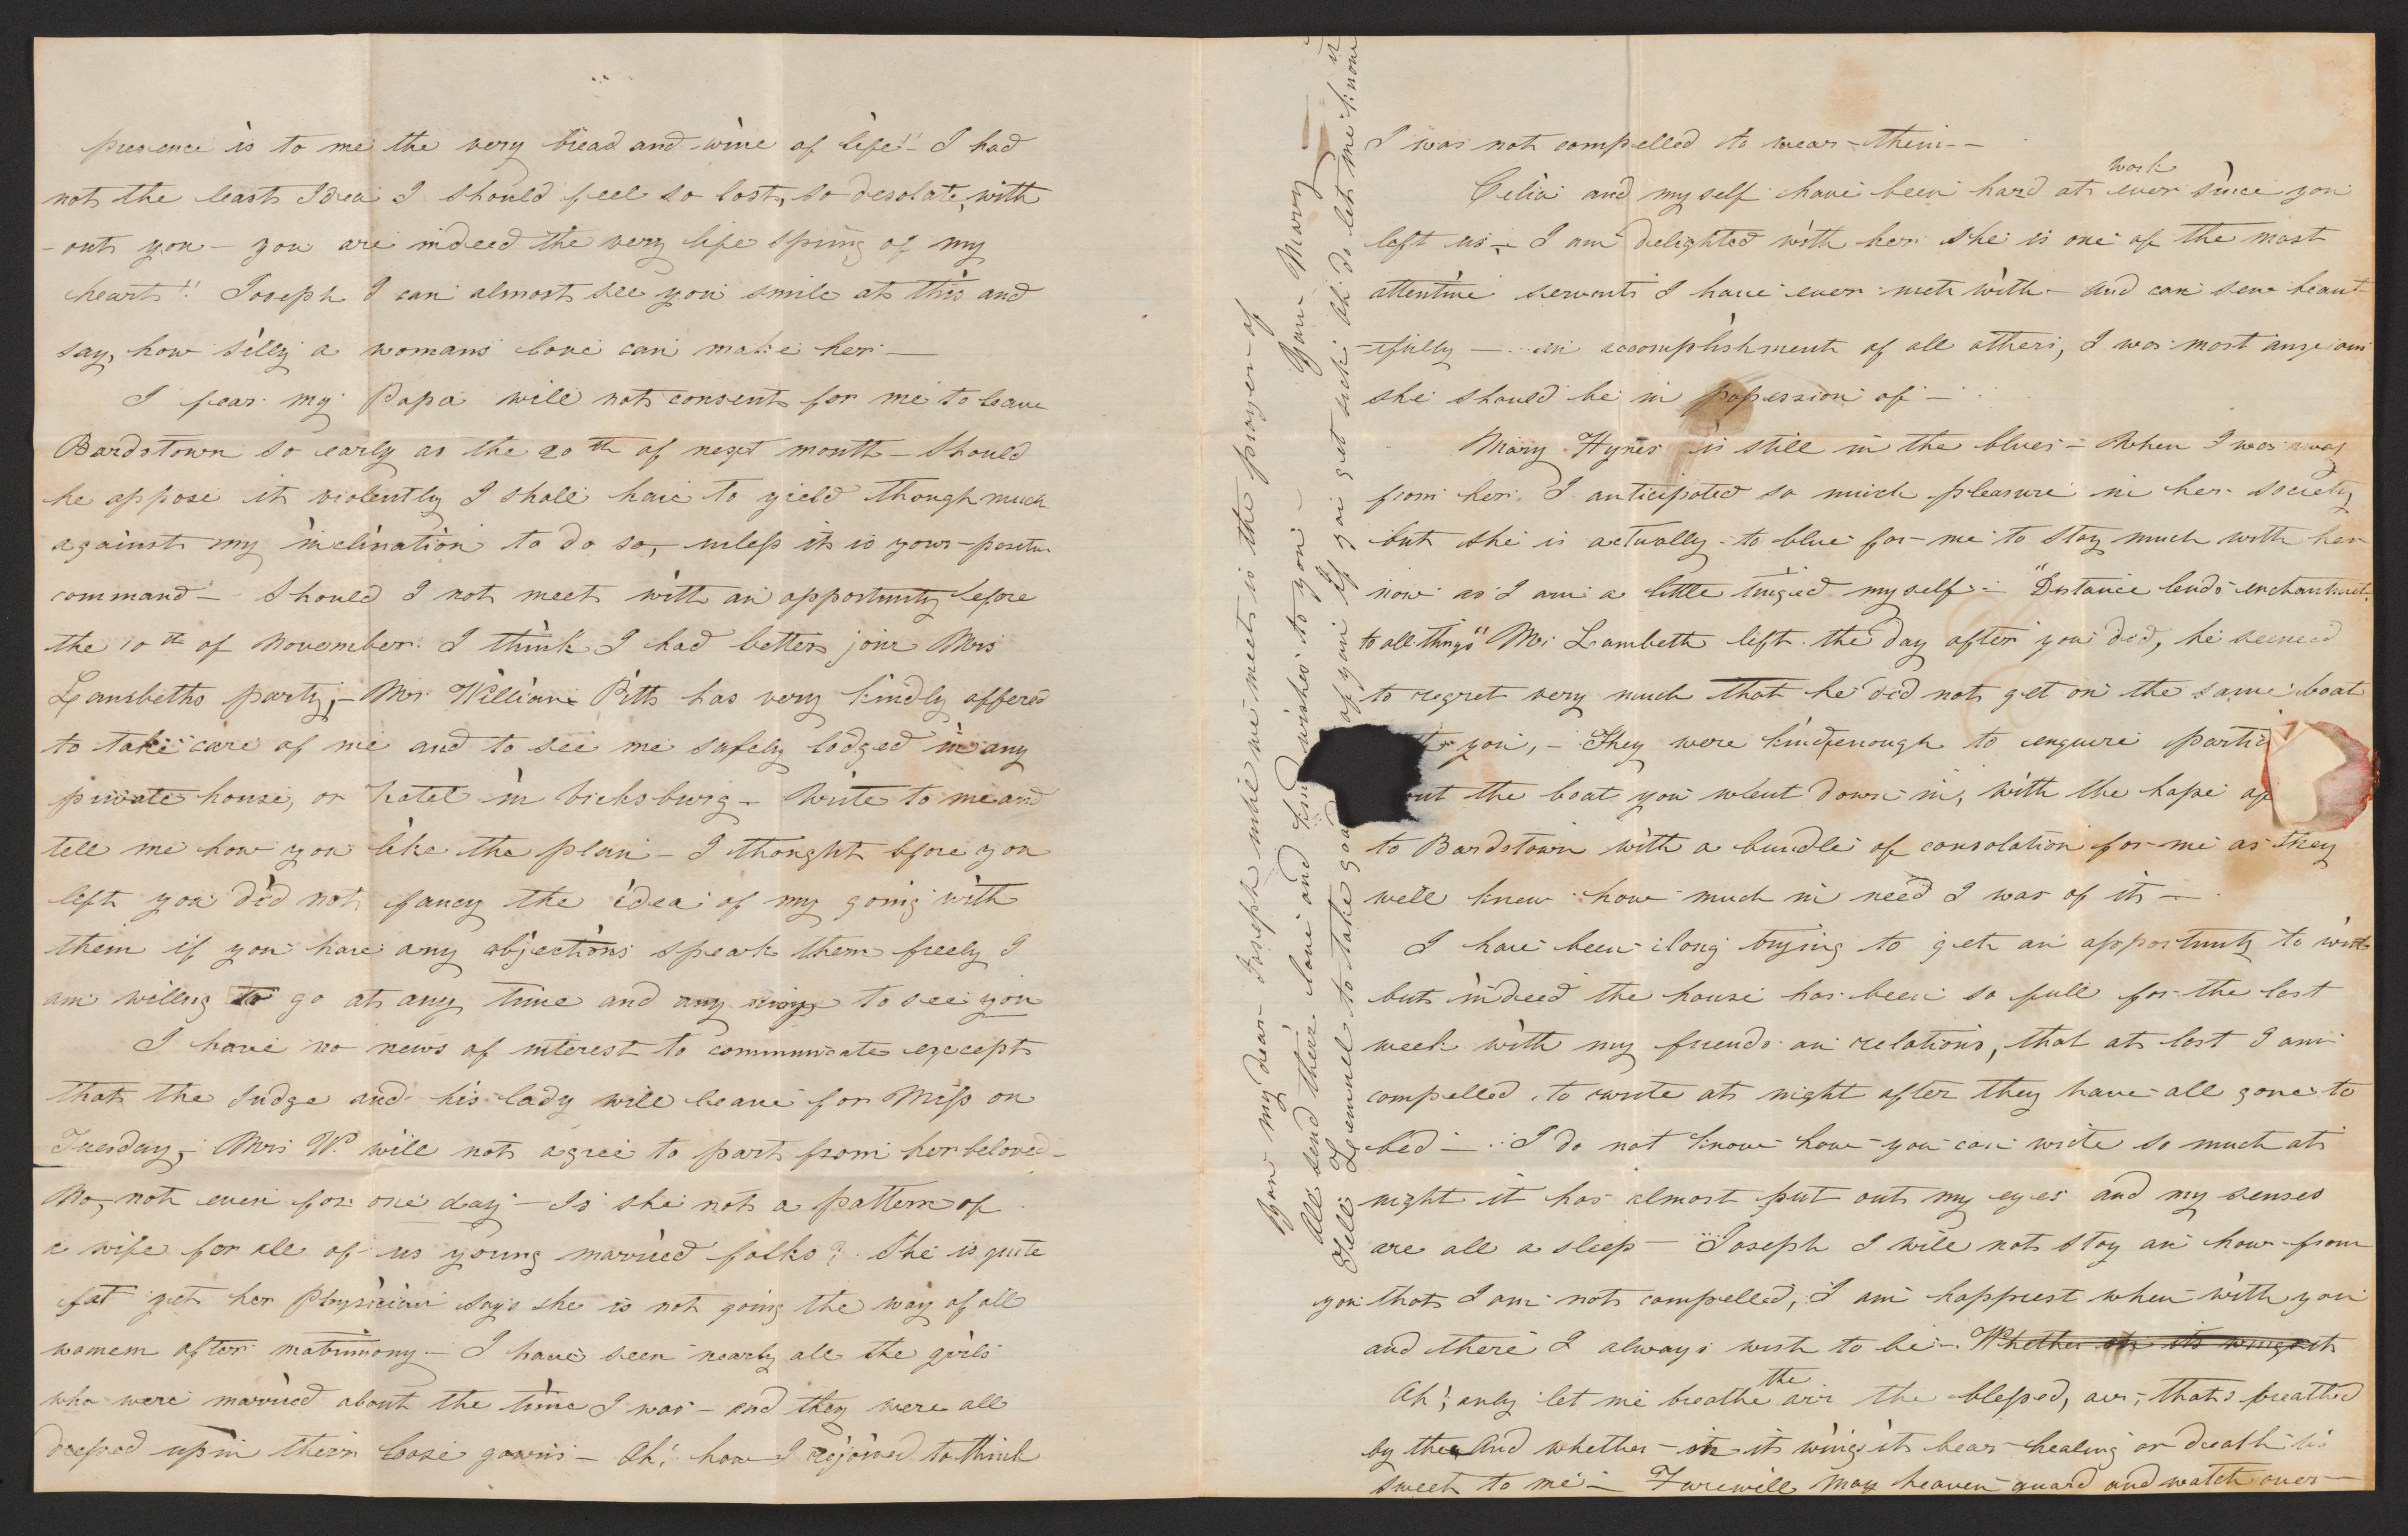 presence is to me the very bread and wine of life!! I had
not the least Idea I should feel so lost, so desolate, with
-out you - you are indeed the very life spring of my
heart!! Joseph I can almost see you smile at this and
say, how silly a womans love can make her —
I fear my Papa will not consent for me to leave
Bardstown so early as the 20th of next month - Should
he oppose it violently I shall have to yield though much
against my inclination to do so, - unless it is your
command - Should I not meet with an opportunity before
the 10th of November I think I had better join Mrs
Lambeths party, - Mr William Pitts has very kindly offered
to take care of me and to see me safely lodged in any
private house, or hotel in Vicksburg - Write to me and
tell me how you like the plan - I thought before you
left you did not fancy the idea of my going with
them if you have any objections speak them freely I
am willing to go at any time and any to see you
I have no news of interest to communicate except
that the Judge and his lady will leave for Miss on
Tuesday, Mrs W. will not agree to part from her beloved -
No, not even for one day - Is she not a pattern of
a wife for all of us young married folks? She is quite
fat yet her Physician says she is not going the way of all
women after matrimony - I have seen nearly all the girls
who were married about the time I was - and they were all
dressed up in their loose gowns - Oh! how I rejoiced to think
I was not compelled to wear them -
Celia and myself have been hard at work ever since you
left us - I am delighted with her she is one of the most
attentive servants I have ever met with - and can sew beaut-
-ifully — an accomplishment of all others, I was most anxious
she should be in possession of -
Mary Hynes is still in the blues - When I was away
from her I anticipated so much pleasure in her society
but she is actually to blue for me to stay much with her
now as I am a little tinged myself - "Distance lends enchantment
to all things" Mr Lambeth left the day after you did, he seemed
to regret very much that he did not get on the same boat
you, - They were kind enough to enquire
the boat you went down in, with the hope of
to Bardstown with a bundle of consolation for me as they
well knew how much in need I was of it -
I have been long trying to get an opportunity to write
but indeed the house has been so full for the last
week with my friends an relations, that at last I am
compelled to write at night after they have all gone to
bed - I do not know how you can write so much at
night it has almost put out my eyes and my senses
are all a sleep - Joseph I will not stay an hour from
you that I am not compelled, I am happiest when with you
and there I always wish to be - Whether on its wings it
Oh! only let me breathe the air the blessed, air, thats breathed
by thee And whether on its wings it bear healing or death tis
sweet to me - Farewell may heaven guard and watch over
you my dear Joseph until we meet is the prayer of
Your Mary
All send their love and kind wishes to you -
Tell Lemuel to take good of you if you get sick. Oh do let me know it